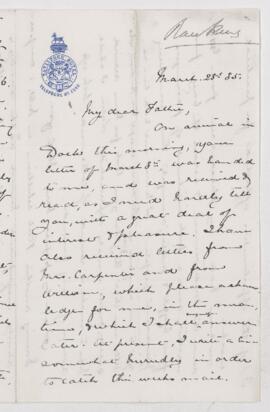 March. 28th 85.
My dear Father,
On arrival in
Docks this morning, your
letter of March 8th was handed
to me, and was received &
read, as I need hardly tell
you, with a great deal of
interest & pleasure. I have
also received letters from
Mrs. Carpenter and from
William, which please acknow
ledge for me, in the mean
time, & which I shall answer
later. At present, I write a bit
somewhat hurriedly in order
to catch this weeks mail.